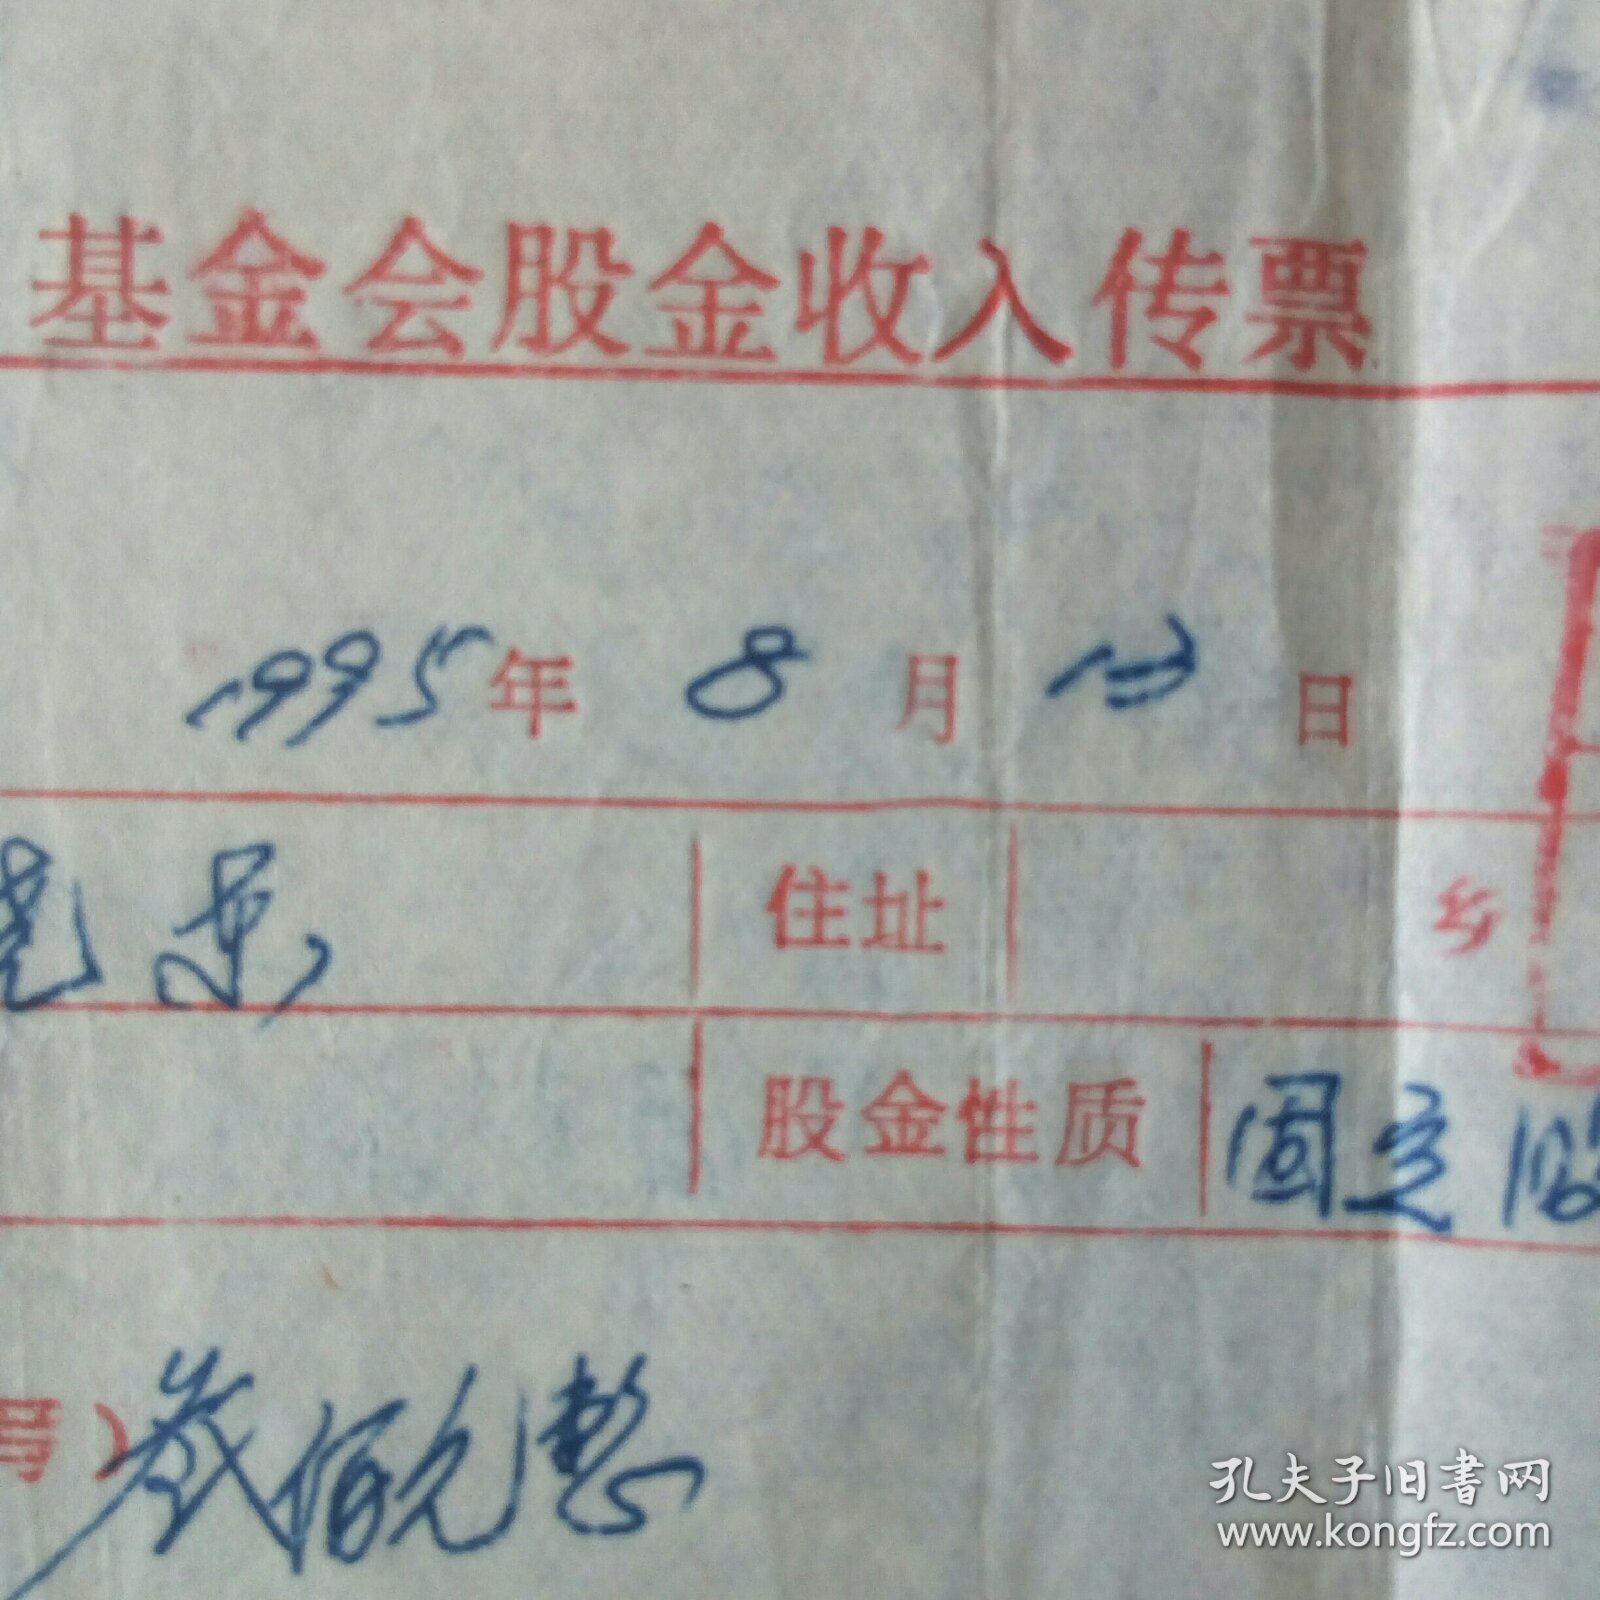 基金会股金收入传票
1995年 8月 13日
住址 乡
股金性质 固定股
写）叁佰元整
孔夫子旧书网
www.kongfz.com